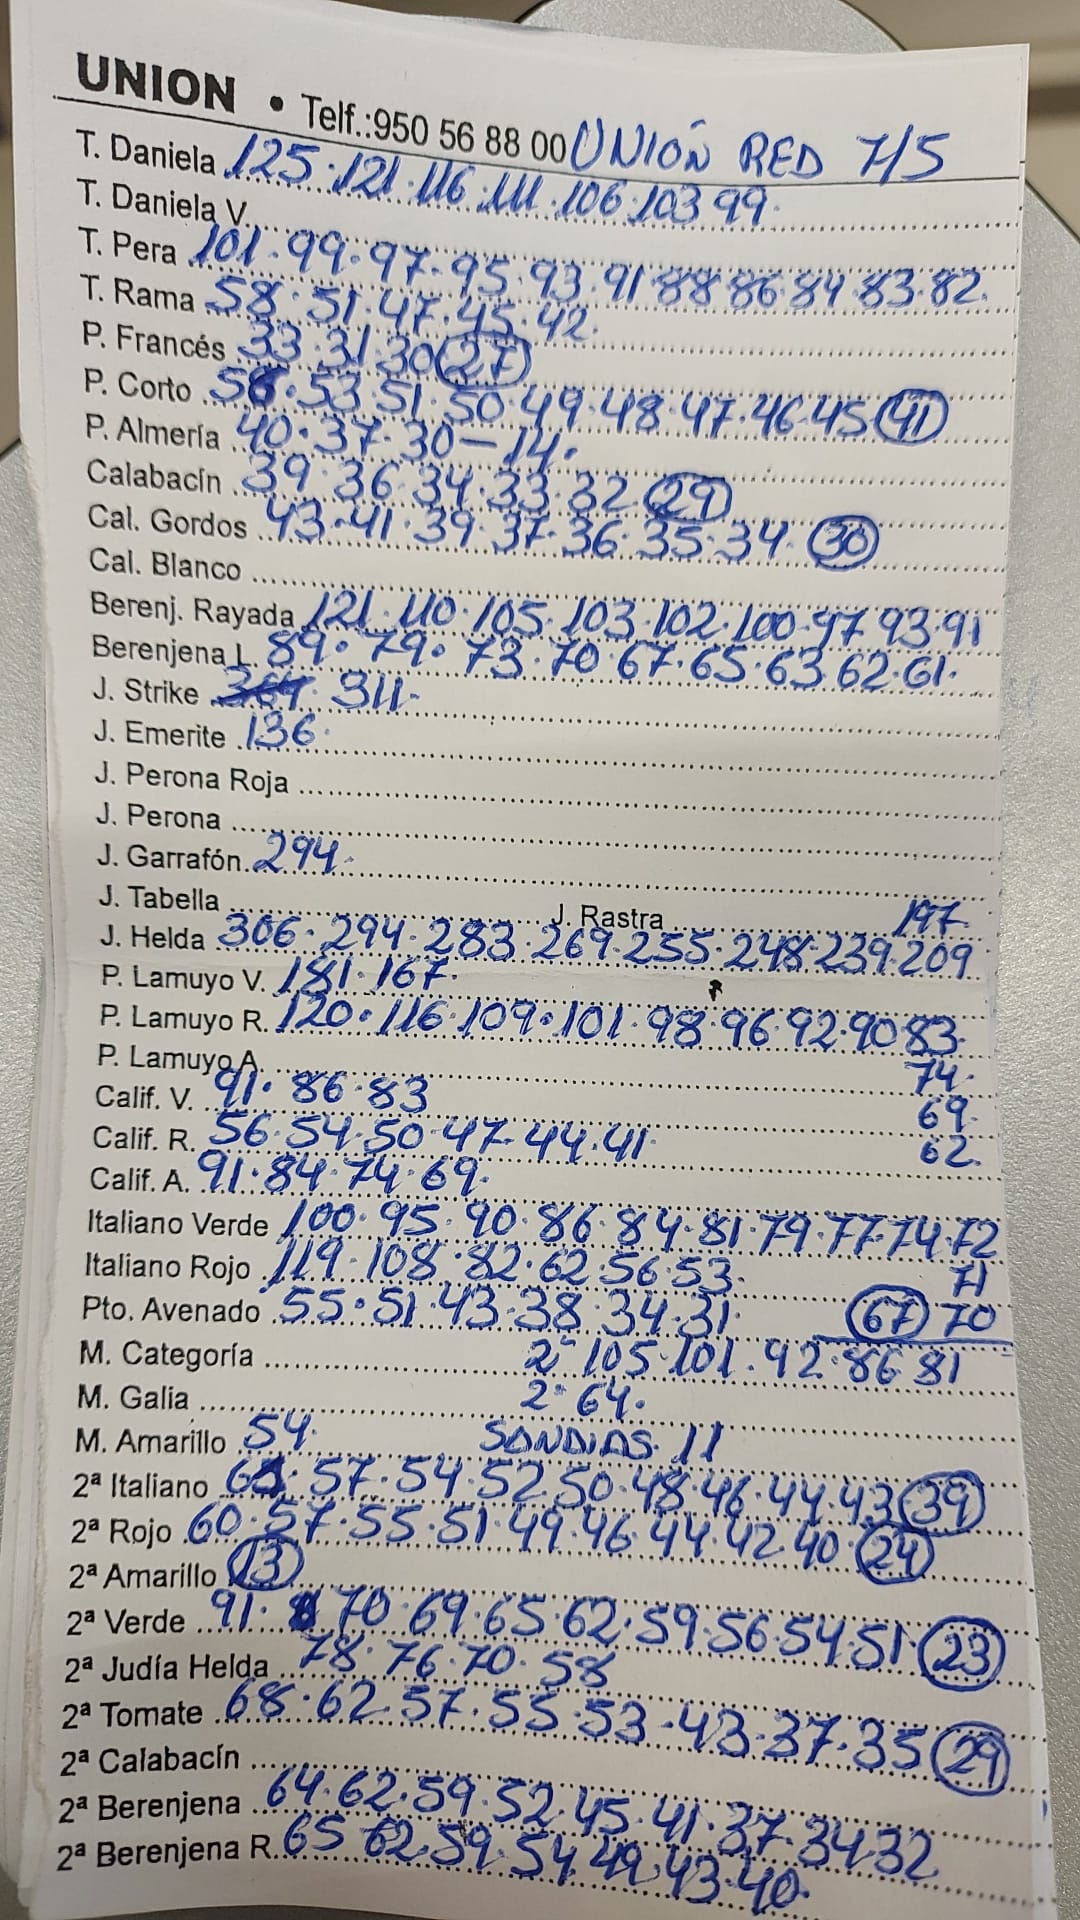 UNION • Telf.:950 56 88 00 UNIÓN RED 7/5
T. Daniela 125·121·116·111·106·103 99·
T. Daniela V.
T. Pera 101·99·97·95·93·91 88 86 84 83·82·
T. Rama 58·51·47·45·42·
P. Francés 33·31·30 27
P. Corto 56·53·51·50·49·48·47·46·45 41
P. Almería 40·37·30-14·
Calabacín 39·36·34·33·32 29
Cal. Gordos 43·41·39·37·36·35·34· 30
Cal. Blanco
Berenj. Rayada 121·110·105·103·102·100·97 93·91
Berenjena L. 89·79·73·70·67·65·63 62·61·
J. Strike 311·
J. Emerite 136·
J. Perona Roja
J. Perona
J. Garrafón 294·
J. Tabella J. Rastra 197·
J. Helda 306·294·283·269·255·248·239·209
P. Lamuyo V. 181·167·
P. Lamuyo R. 120·116·109·101·98·96·92·90 83·
P. Lamuyo A. 74·
Calif. V. 91·86·83 69·
Calif. R. 56·54·50·47·44·41· 62·
Calif. A. 91·84·74·69·
Italiano Verde 100·95·90·86·84·81·79·77·74·72
Italiano Rojo 119·108·82·62 56·53· 71
Pto. Avenado 55·51·43·38·34·31· 67 70
M. Categoría 2ª 105·101·92·86 81
M. Galia 2ª 64·
M. Amarillo 54· SANDIAS· 11
2ª Italiano 57·54·52 50·48·46·44·43 39
2ª Rojo 60·57·55·51·49·46·44·42·40· 24
2ª Amarillo 13
2ª Verde 91· 70·69·65·62·59·56·54·51· 23
2ª Judía Helda 78·76·70·58
2ª Tomate 68·62·57·55·53·43·37·35 29
2ª Calabacín
2ª Berenjena 64·62·59·52·45·41·37·34·32
2ª Berenjena R. 65 62·59·54·49·43·40·